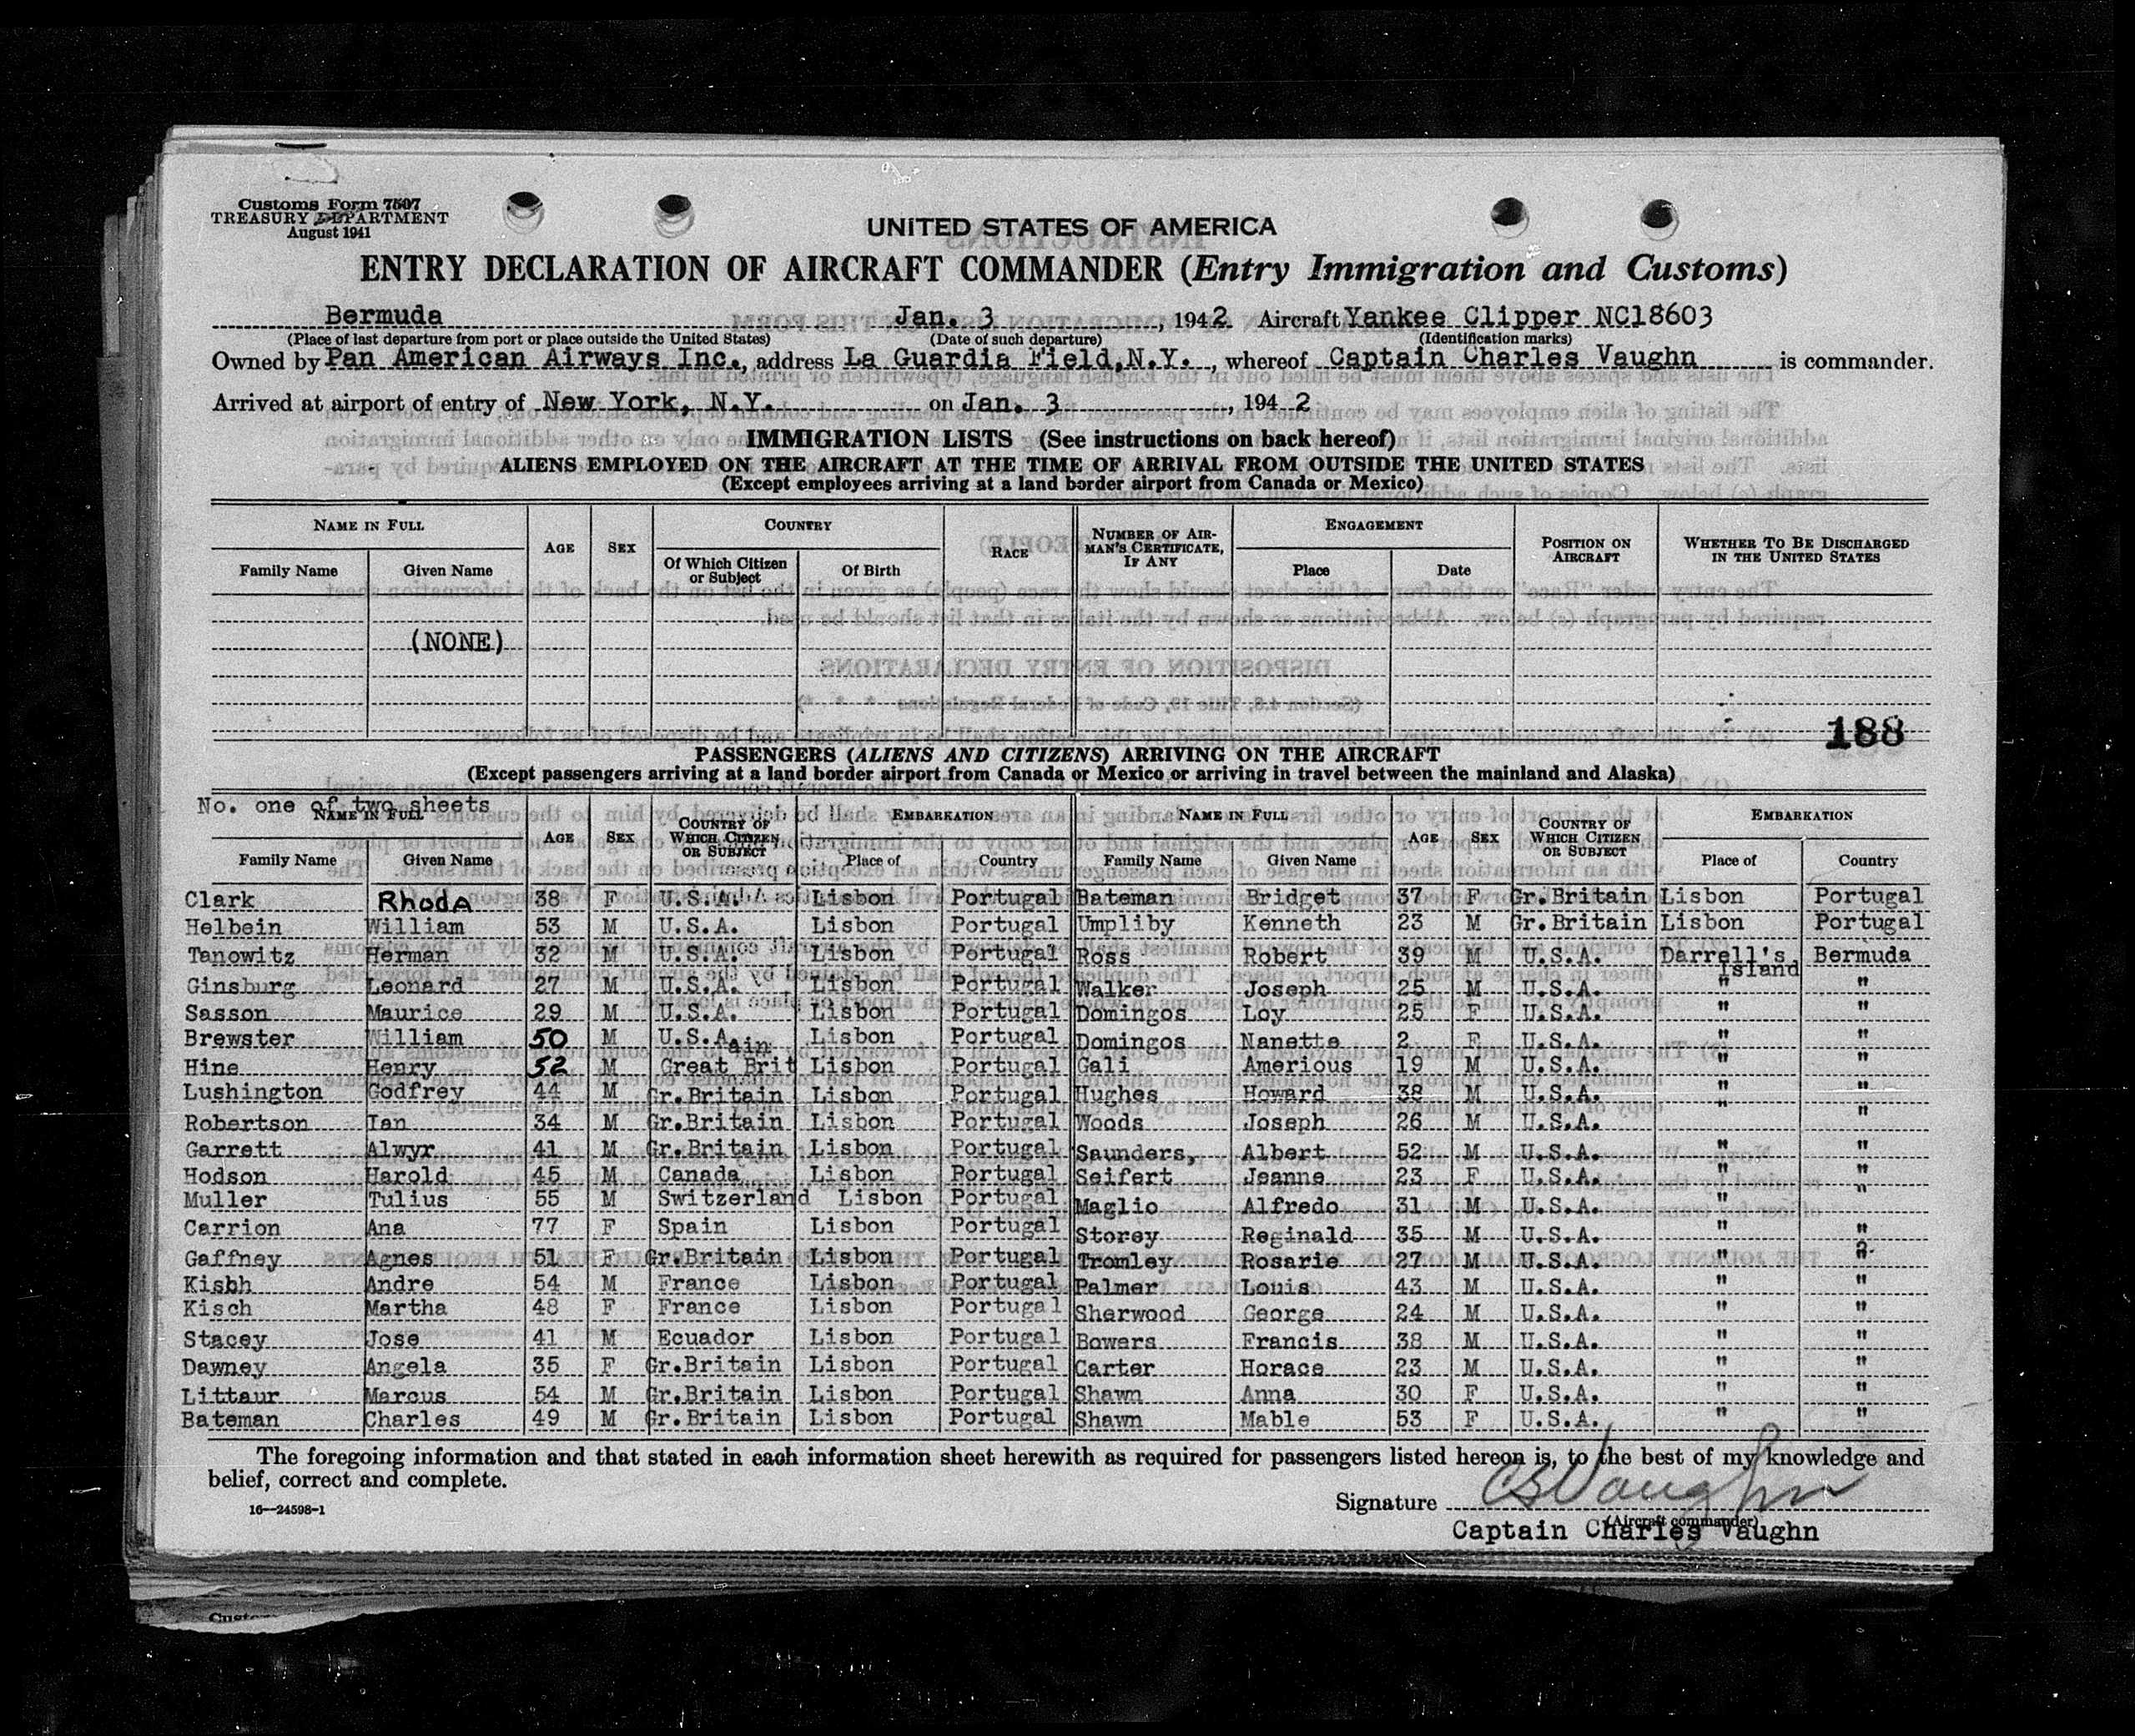 Customs Form 7507
TREASURY DEPARTMENT
August 1941
UNITED STATES OF AMERICA
ENTRY DECLARATION OF AIRCRAFT COMMANDER (Entry Immigration and Customs)
Bermuda Jan. 3, 1942 Aircraft Yankee Clipper NC18603
(Place of last departure from port or place outside the United States) (Date of such departure) (Identification marks)
Owned by Pan American Airways Inc., address La Guardia Field,N.Y., whereof Captain Charles Vaughn is commander.
Arrived at airport of entry of New York, N.Y. on Jan. 3, 1942
IMMIGRATION LISTS (See instructions on back hereof)
ALIENS EMPLOYED ON THE AIRCRAFT AT THE TIME OF ARRIVAL FROM OUTSIDE THE UNITED STATES
(Except employees arriving at a land border airport from Canada or Mexico)
NAME IN FULL AGE SEX COUNTRY RACE NUMBER OF AIRMAN'S CERTIFICATE, IF ANY ENGAGEMENT POSITION ON AIRCRAFT WHETHER TO BE DISCHARGED IN THE UNITED STATES
Family Name Given Name Of Which Citizen or Subject Of Birth Place Date
(NONE)
188
PASSENGERS (ALIENS AND CITIZENS) ARRIVING ON THE AIRCRAFT
(Except passengers arriving at a land border airport from Canada or Mexico or arriving in travel between the mainland and Alaska)
No. one of two sheets
NAME IN FULL AGE SEX COUNTRY OF WHICH CITIZEN OR SUBJECT EMBARKATION NAME IN FULL AGE SEX COUNTRY OF WHICH CITIZEN OR SUBJECT EMBARKATION
Family Name Given Name Place of Country Family Name Given Name Place of Country
Clark Rhoda 38 F U.S.A. Lisbon Portugal Bateman Bridget 37 F Gr.Britain Lisbon Portugal
Helbein William 53 M U.S.A. Lisbon Portugal Umpliby Kenneth 23 M Gr.Britain Lisbon Portugal
Tanowitz Herman 32 M U.S.A. Lisbon Portugal Ross Robert 39 M U.S.A. Darrell's Island Bermuda
Ginsburg Leonard 27 M U.S.A. Lisbon Portugal Walker Joseph 25 M U.S.A. " "
Sasson Maurice 29 M U.S.A. Lisbon Portugal Domingos Loy 25 F U.S.A. " "
Brewster William 50 M U.S.A. Lisbon Portugal Domingos Nanette 2 F U.S.A. " "
Hine Henry 52 M Great Britain Lisbon Portugal Gali Amerious 19 M U.S.A. " "
Lushington Godfrey 44 M Gr.Britain Lisbon Portugal Hughes Howard 38 M U.S.A. " "
Robertson Ian 34 M Gr.Britain Lisbon Portugal Woods Joseph 26 M U.S.A. " "
Garrett Alwyr 41 M Gr.Britain Lisbon Portugal Saunders, Albert 52 M U.S.A. " "
Hodson Harold 45 M Canada Lisbon Portugal Seifert Jeanne 23 F U.S.A. " "
Muller Tulius 55 M Switzerland Lisbon Portugal Maglio Alfredo 31 M U.S.A. " "
Carrion Ana 77 F Spain Lisbon Portugal Storey Reginald 35 M U.S.A. " "
Gaffney Agnes 51 F Gr.Britain Lisbon Portugal Tromley Rosarie 27 M U.S.A. " "
Kisbh Andre 54 M France Lisbon Portugal Palmer Louis 43 M U.S.A. " "
Kisch Martha 48 F France Lisbon Portugal Sherwood George 24 M U.S.A. " "
Stacey Jose 41 M Ecuador Lisbon Portugal Bowers Francis 38 M U.S.A. " "
Dawney Angela 35 F Gr.Britain Lisbon Portugal Carter Horace 23 M U.S.A. " "
Littaur Marcus 54 M Gr.Britain Lisbon Portugal Shawn Anna 30 F U.S.A. " "
Bateman Charles 49 M Gr.Britain Lisbon Portugal Shawn Mable 53 F U.S.A. " "
The foregoing information and that stated in each information sheet herewith as required for passengers listed hereon is, to the best of my knowledge and
belief, correct and complete.
16—24598-1
Signature CSVaughn
(Aircraft commander)
Captain Charles Vaughn